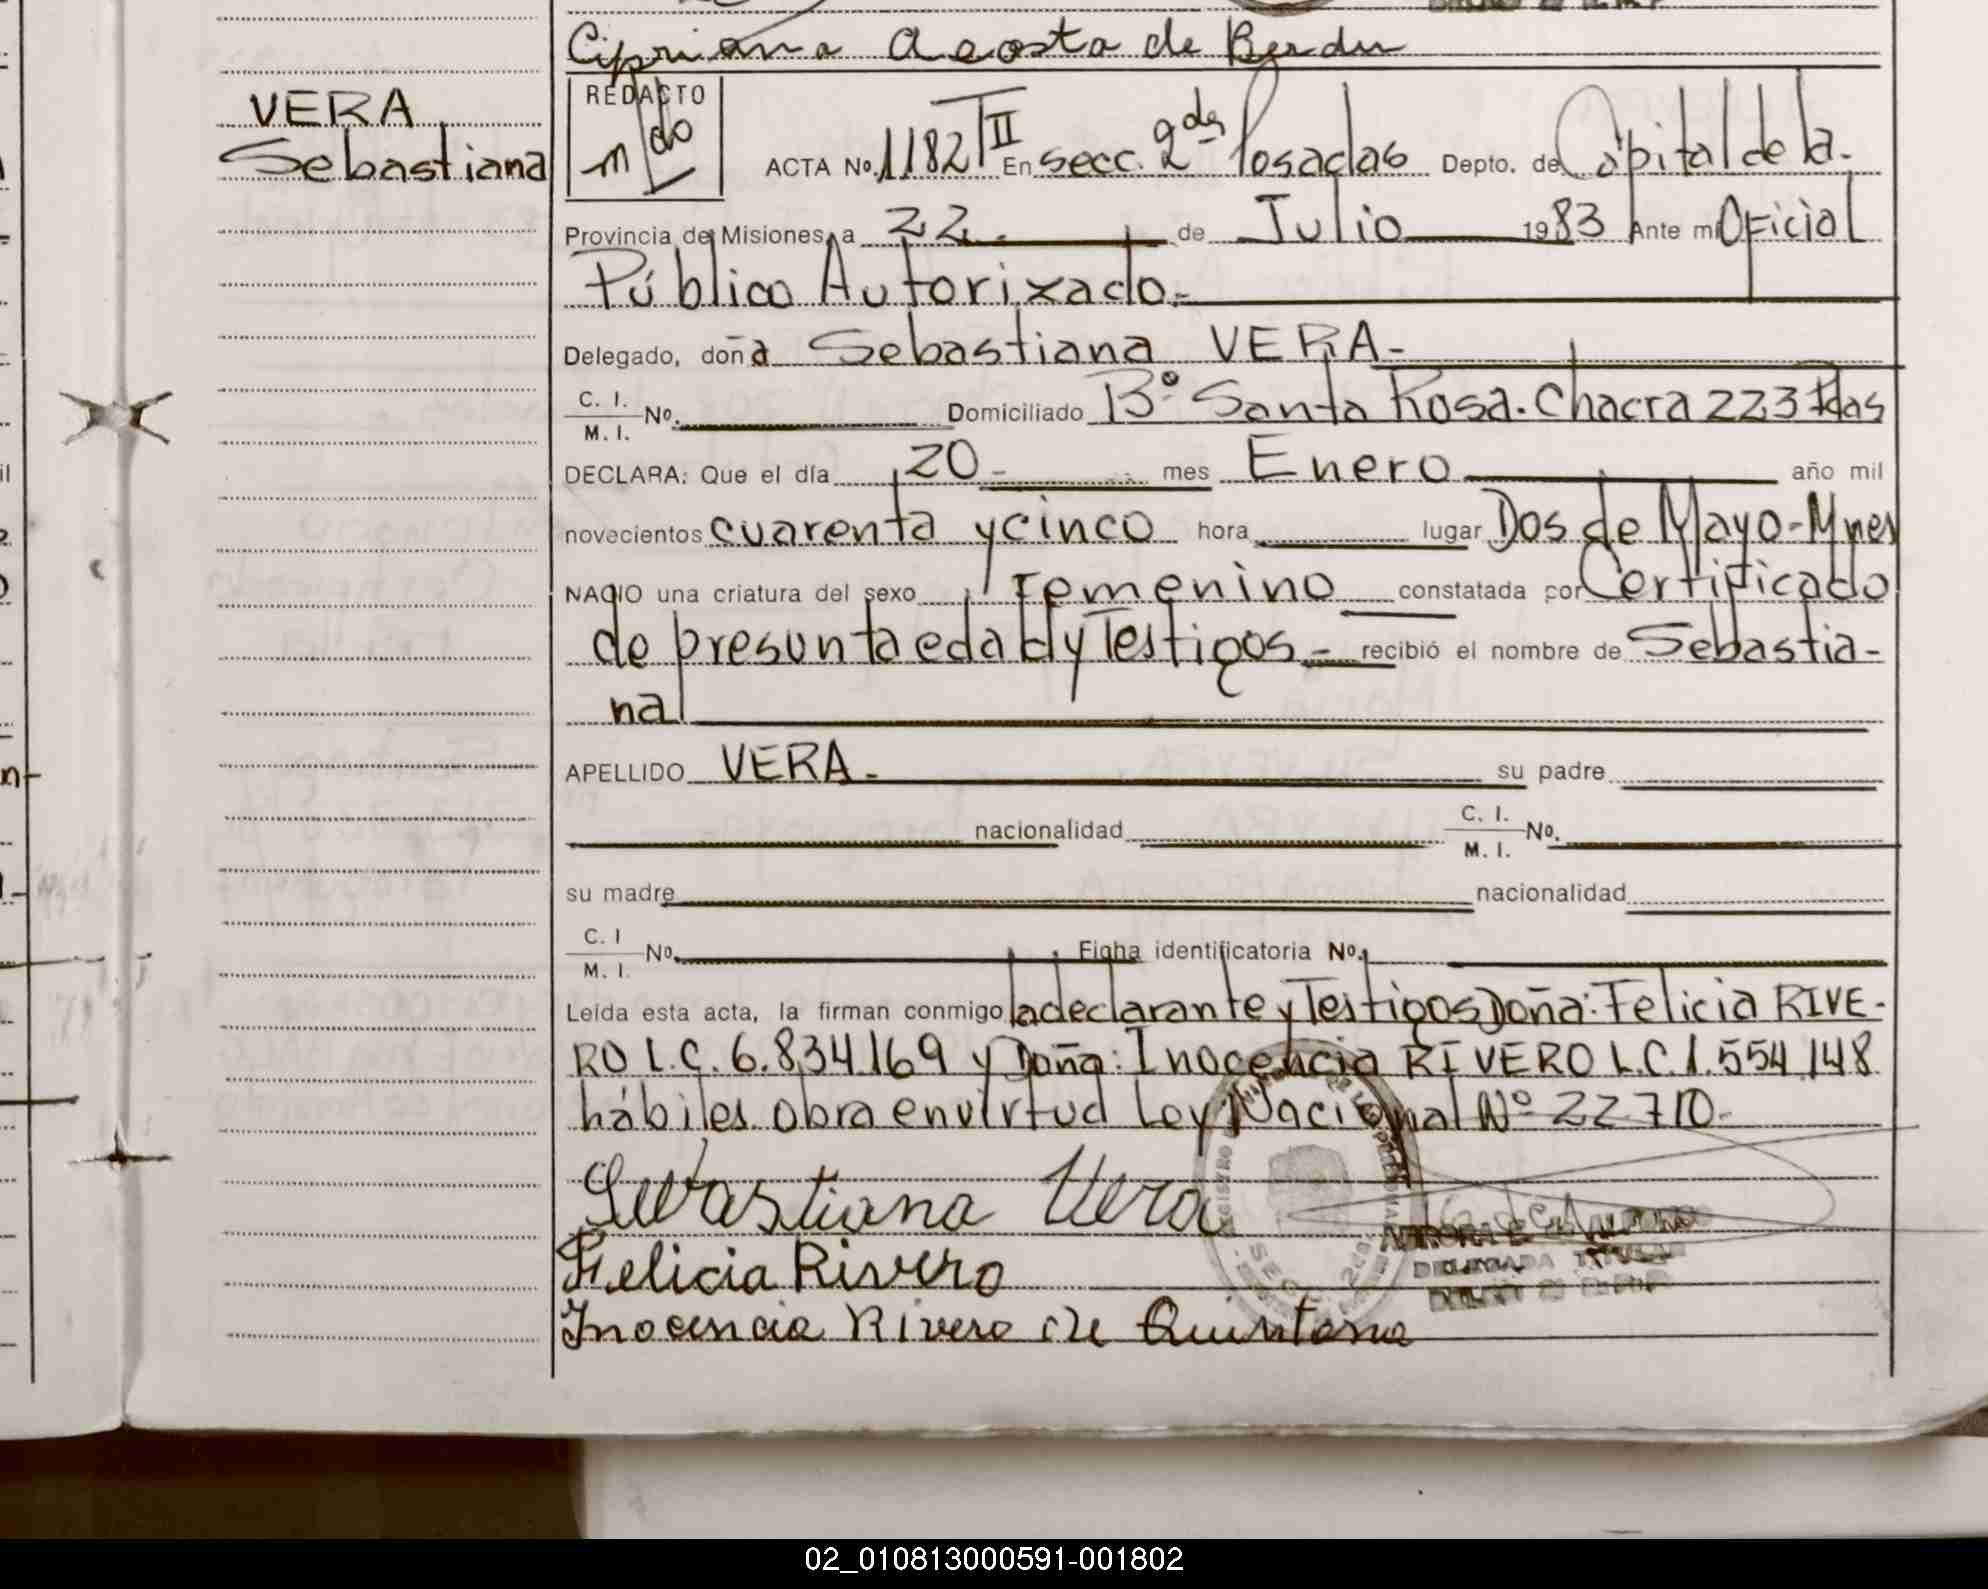 Cipriana Acosta de Berdu
VERA
Sebastiana
REDACTO
ACTA No. 1182 TII En secc. 2da Posadas Depto. de Capital de la.
Provincia de Misiones, a 22. de Julio 1983 Ante mi Oficial
Público Autorixado.-
Delegado, doña Sebastiana VERA-
C. I.
M. I. No. Domiciliado B° Santa Rosa. Chacra 223 Pdas
DECLARA: Que el día 20- mes Enero año mil
novecientos cuarenta y cinco hora lugar Dos de Mayo-Mnes
NACIO una criatura del sexo Femenino constatada por Certificado
de presunta edad y Testigos.- recibió el nombre de Sebastia-
na
APELLIDO VERA. su padre
nacionalidad C. I.
M. I. No.
su madre nacionalidad
C. I
M. I. No. Ficha identificatoria No.
Leída esta acta, la firman conmigo la declarante y Testigos Doña: Felicia RIVE-
RO L.C. 6.834.169 y Doña: Inocencia RIVERO L.C. 1.554.148
hábiles obra en virtud Ley Nacional N° 22710-
Sebastiana Vera
Felicia Rivero
Inocencia Rivero de Quintana
02_010813000591-001802